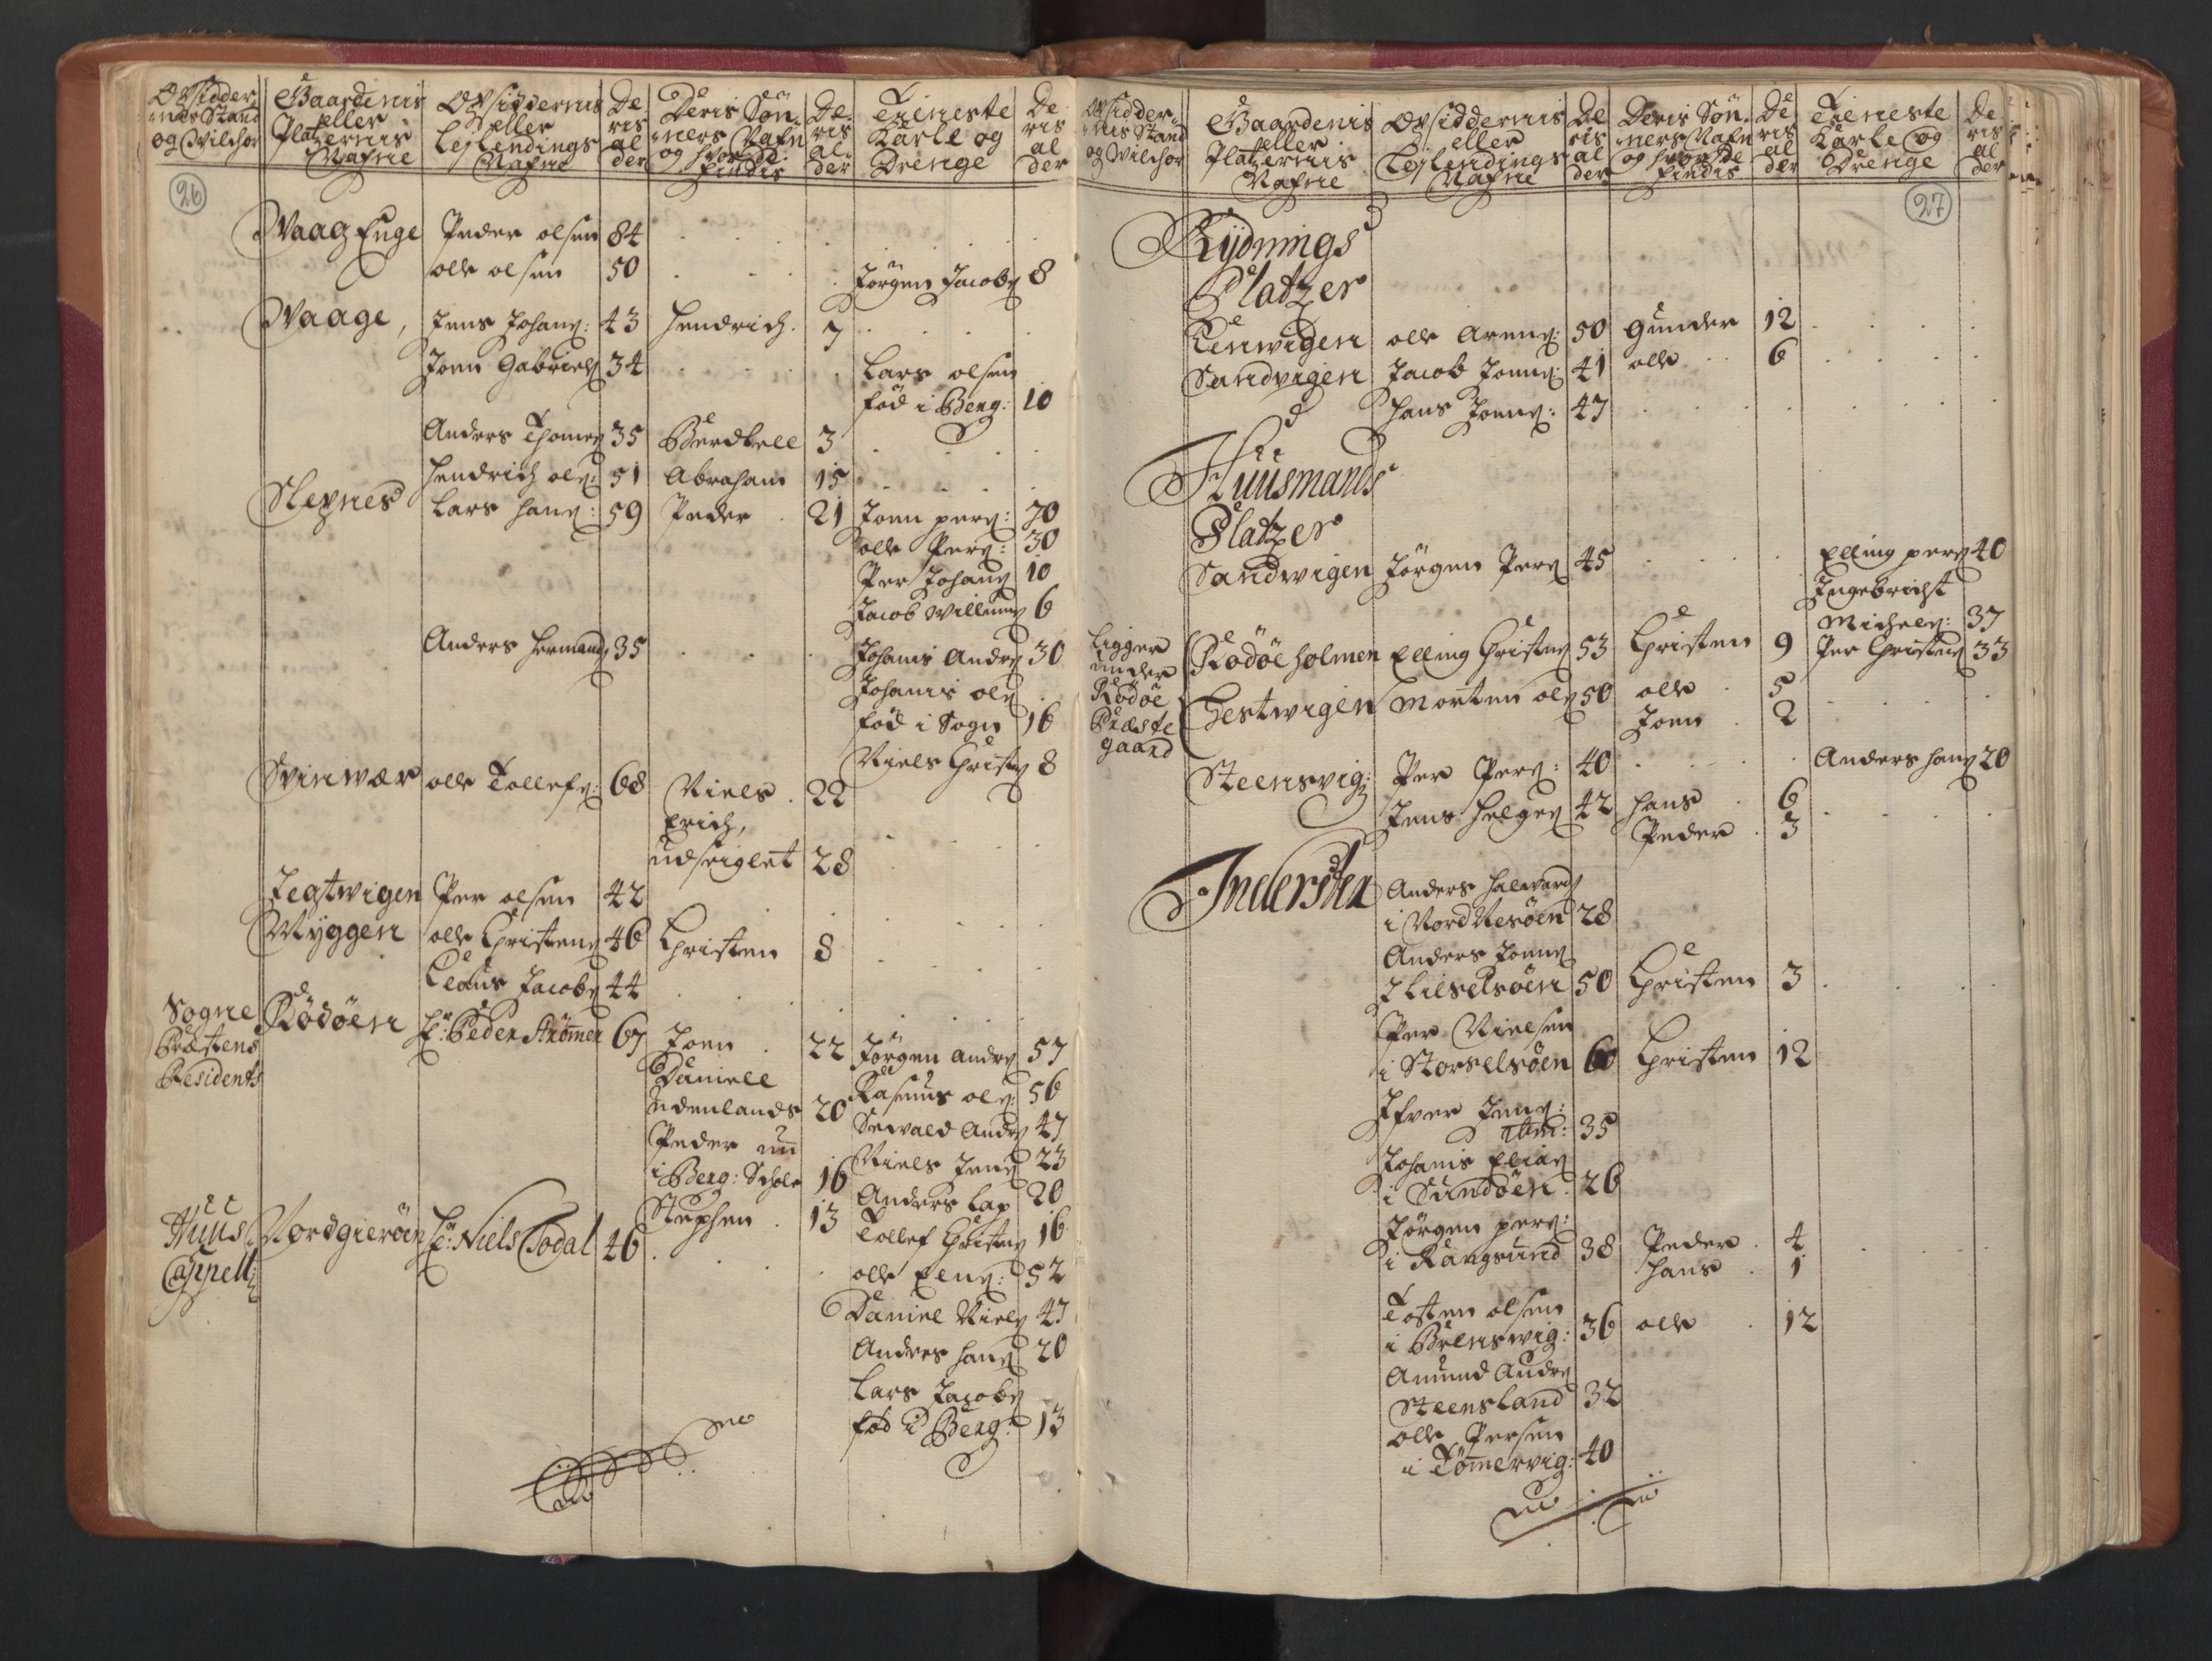 26
Opsidder-
nes Stand
og Vilchor
Gaardenis
eller
Platzernis
Nafne
Opsiddernis
eller
Lejlendings
Nafne
De
ris
al
der
Deris Søn-
ners Nafn
og hvor de
findis
De-
ris
al-
der
Tieneste
Karle og
Drenge
De
ris
al
der
Waag Enge Peder olsen 84
olle olsen 50 Jørgen Jacobs 8
Waage, Jens Johans: 43 Hendrich 7
Joen Gabriels 34 Lars olsen
fød i Berg: 10
Anders Thomes 35 Burdtell 3
Hendrich ols: 51 Abraham 15
Slepnes Lars Hans: 59 Peder 21 Joen pers: 70
olle Pers: 30
Per Johans 10
Jacob Willums 6
Anders Hermands 35 Johanis Anders 30
Johanis ols
fød i Sogn 16
Niels Christens 8
Svinwær olle Tollefs: 68 Niels 22
Erich,
udseiglet 28
Jegtwigen Per olsen 42
Myggen olle Christens 46 Christen 8
Claus Jacobs 44
Sogne
Præstens
Residents
Rödöen Hr: Peder Strømer 67 Joen 22 Jørgen Anders 57
Daniell
udenlands 20 Rasmus ols: 56
Sewald Anders 47
Peder nu
i Berg: Schole 16 Niels Jens 23
Stephen 13 Anders Lap 20
Tollef Christens 16
Huus-
Cappell:
Nordgierøen Hr: Niels Todal 46
olle Elens: 52
Daniel Niels 47
Anders Hans 20
Lars Jacobs
fød i Berg: 13
27
Opsidder-
nes Stand
og Vilchor
Gaardenis
eller
Platzernis
Nafne
Opsiddernis
eller
Lejlendings
Nafne
De
ris
al
der
Deris Søn-
ners Nafn
og hvor de
findis
De
ris
al
der
Tieneste
Karle og
Drenge
De
ris
al
der
Rydnings
Platzer
Lunwigen olle Arens: 50 Gunder 12
Sandvigen Jacob Joens: 41 olle 6
Hans Joens: 47
Huusmands
Platzer
Sandwigen Jørgen Pers 45 Elling pers 40
Ingebricht
Michels: 37
Ligger
under
Rödöe
Præste
gaard
Rødøeholmen Elling Christens 53 Christen 9 Per Christens 33
Gestwigen Morten ols 50 olle 5
Joen 2
Steensvig: Per Pers: 40 Anders Hans 20
Jens Helges 42 Hans 6
Peder 3
Inderster Anders Halvards
i Nord Nesøen 28
Anders Joens
i Lilselsøen 50 Christen 3
Per Nielsen
i Storselsøen 60 Christen 12
Ifver Jens:
ibm: 35
Johanis Elias
i Sundøen 26
Jørgen pers:
i Rangsund 38 Peder 4
Hans 1
Tosten olsen
i Brenswig: 36 olle 12
Amund Anders
Steensland 32
olle Persen
i Tømervig: 40